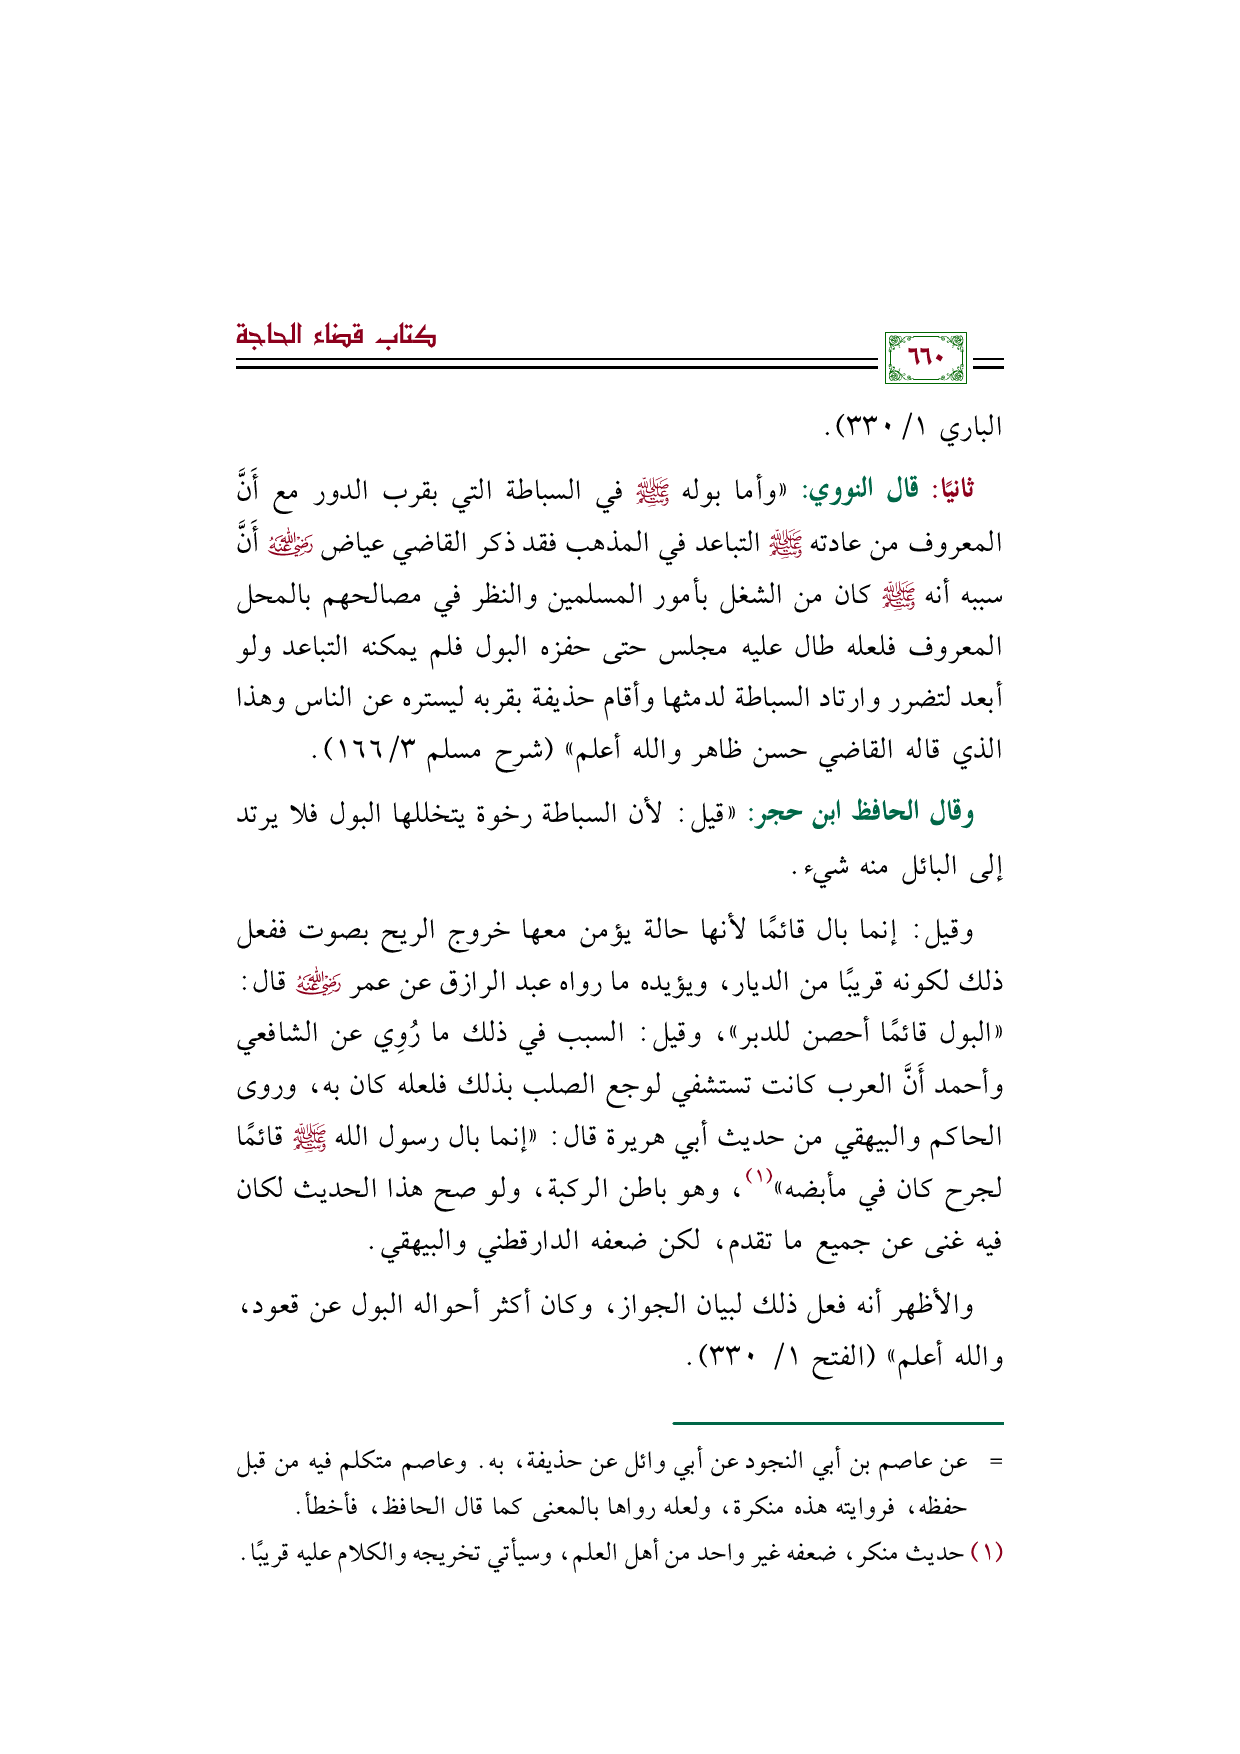 كتاب قضاء الحاجة
٦٦٠
الباري ١/ ٣٣٠).
ثانيًا: قال النووي: «وأما بوله ﷺ في السباطة التي بقرب الدور مع أَنَّ
المعروف من عادته ﷺ التباعد في المذهب فقد ذكر القاضي عياض رضي الله عنه أَنَّ
سببه أنه ﷺ كان من الشغل بأمور المسلمين والنظر في مصالحهم بالمحل
المعروف فلعله طال عليه مجلس حتى حفزه البول فلم يمكنه التباعد ولو
أبعد لتضرر وارتاد السباطة لدمثها وأقام حذيفة بقربه ليستره عن الناس وهذا
الذي قاله القاضي حسن ظاهر والله أعلم» (شرح مسلم ٣/ ١٦٦).
وقال الحافظ ابن حجر: «قيل: لأن السباطة رخوة يتخللها البول فلا يرتد
إلى البائل منه شيء.
وقيل: إنما بال قائمًا لأنها حالة يؤمن معها خروج الريح بصوت ففعل
ذلك لكونه قريبًا من الديار، ويؤيده ما رواه عبد الرازق عن عمر رضي الله عنه قال:
«البول قائمًا أحصن للدبر»، وقيل: السبب في ذلك ما رُوِي عن الشافعي
وأحمد أَنَّ العرب كانت تستشفي لوجع الصلب بذلك فلعله كان به، وروى
الحاكم والبيهقي من حديث أبي هريرة قال: «إنما بال رسول الله ﷺ قائمًا
لجرح كان في مأبضه»(١)، وهو باطن الركبة، ولو صح هذا الحديث لكان
فيه غنى عن جميع ما تقدم، لكن ضعفه الدارقطني والبيهقي.
والأظهر أنه فعل ذلك لبيان الجواز، وكان أكثر أحواله البول عن قعود،
والله أعلم» (الفتح ١/ ٣٣٠).
= عن عاصم بن أبي النجود عن أبي وائل عن حذيفة، به. وعاصم متكلم فيه من قبل
حفظه، فروايته هذه منكرة، ولعله رواها بالمعنى كما قال الحافظ، فأخطأ.
(١) حديث منكر، ضعفه غير واحد من أهل العلم، وسيأتي تخريجه والكلام عليه قريبًا.